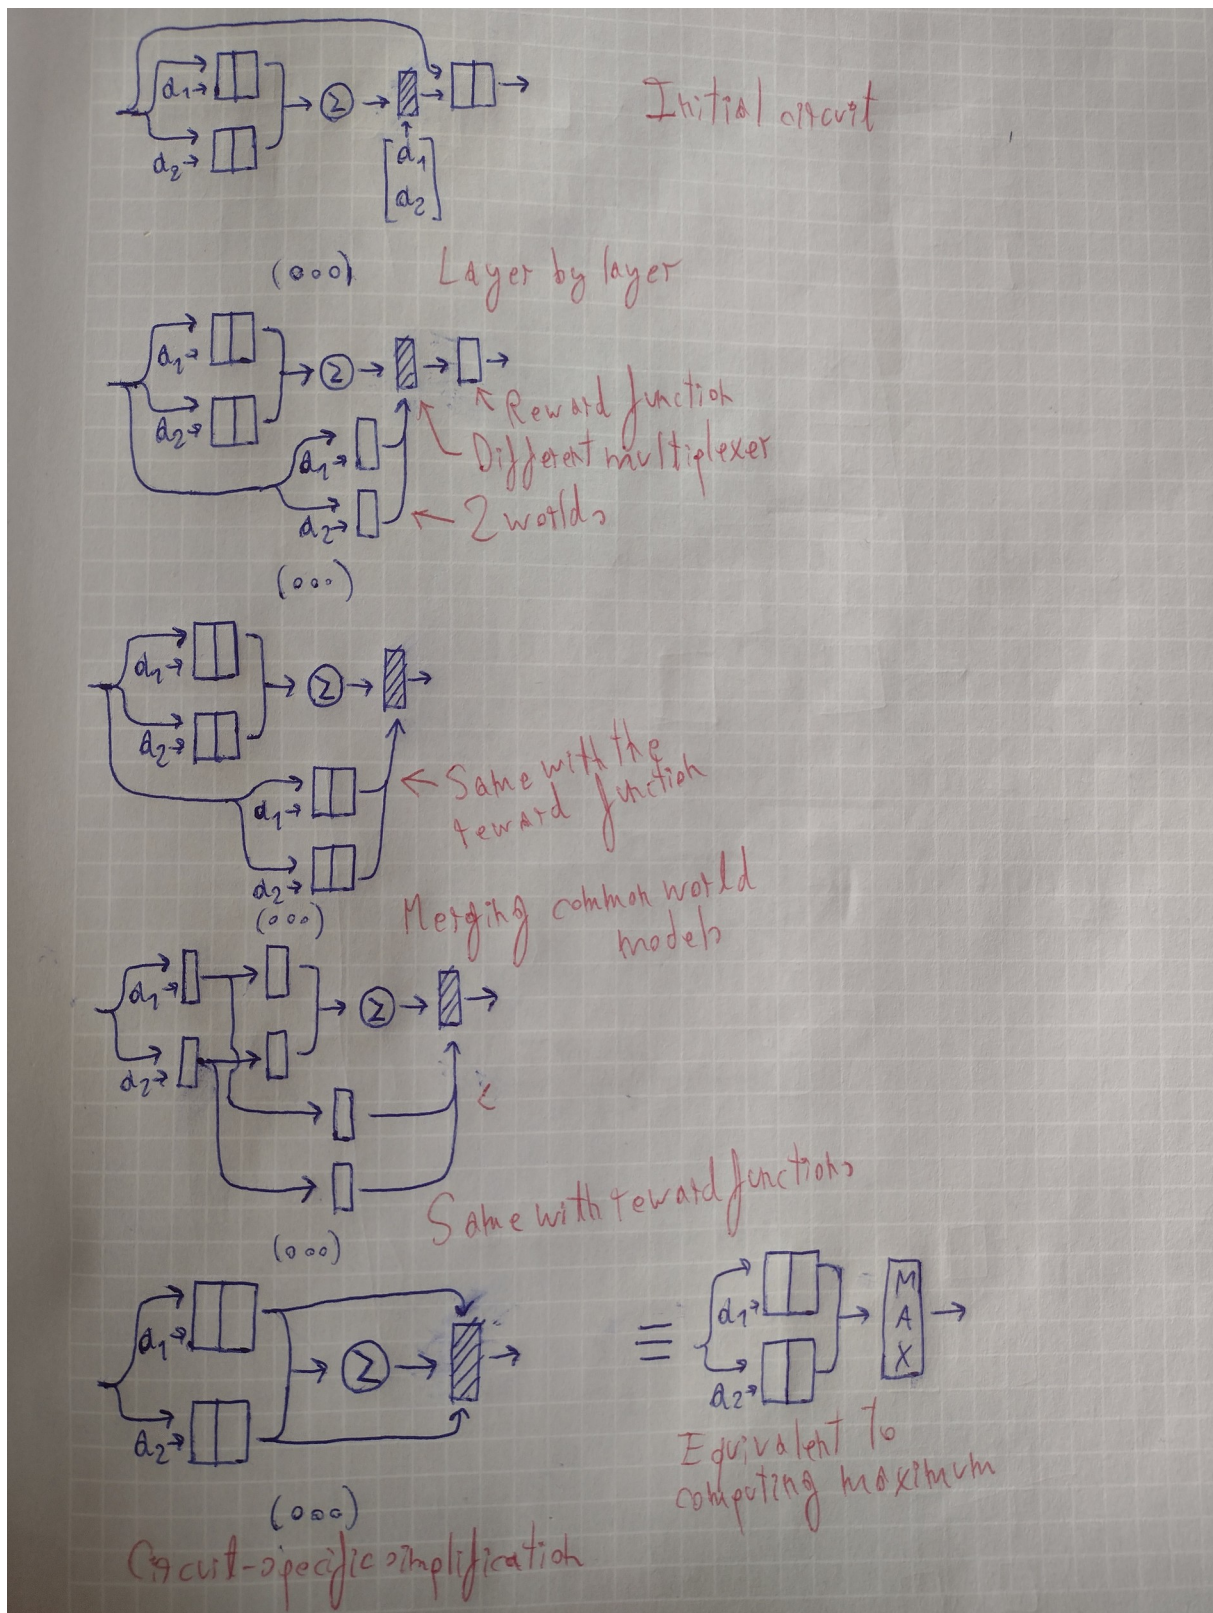 a1→
Σ
Initial circuit
a2→
a1
a2
(ooo) Layer by layer
a1→
Σ
Reward function
a2→
Different multiplexer
a1→
a2→
2 worlds
(ooo)
a1→
Σ
a2→
Same with the
reward function
a1→
a2→
(ooo)
Merging common world
models
a1→
Σ
a2→
Same with reward functions
(ooo)
a1→
Σ
≡
a1→
M
A
X
a2→
a2→
Equivalent to
computing maximum
(ooo)
Circuit-specific simplification